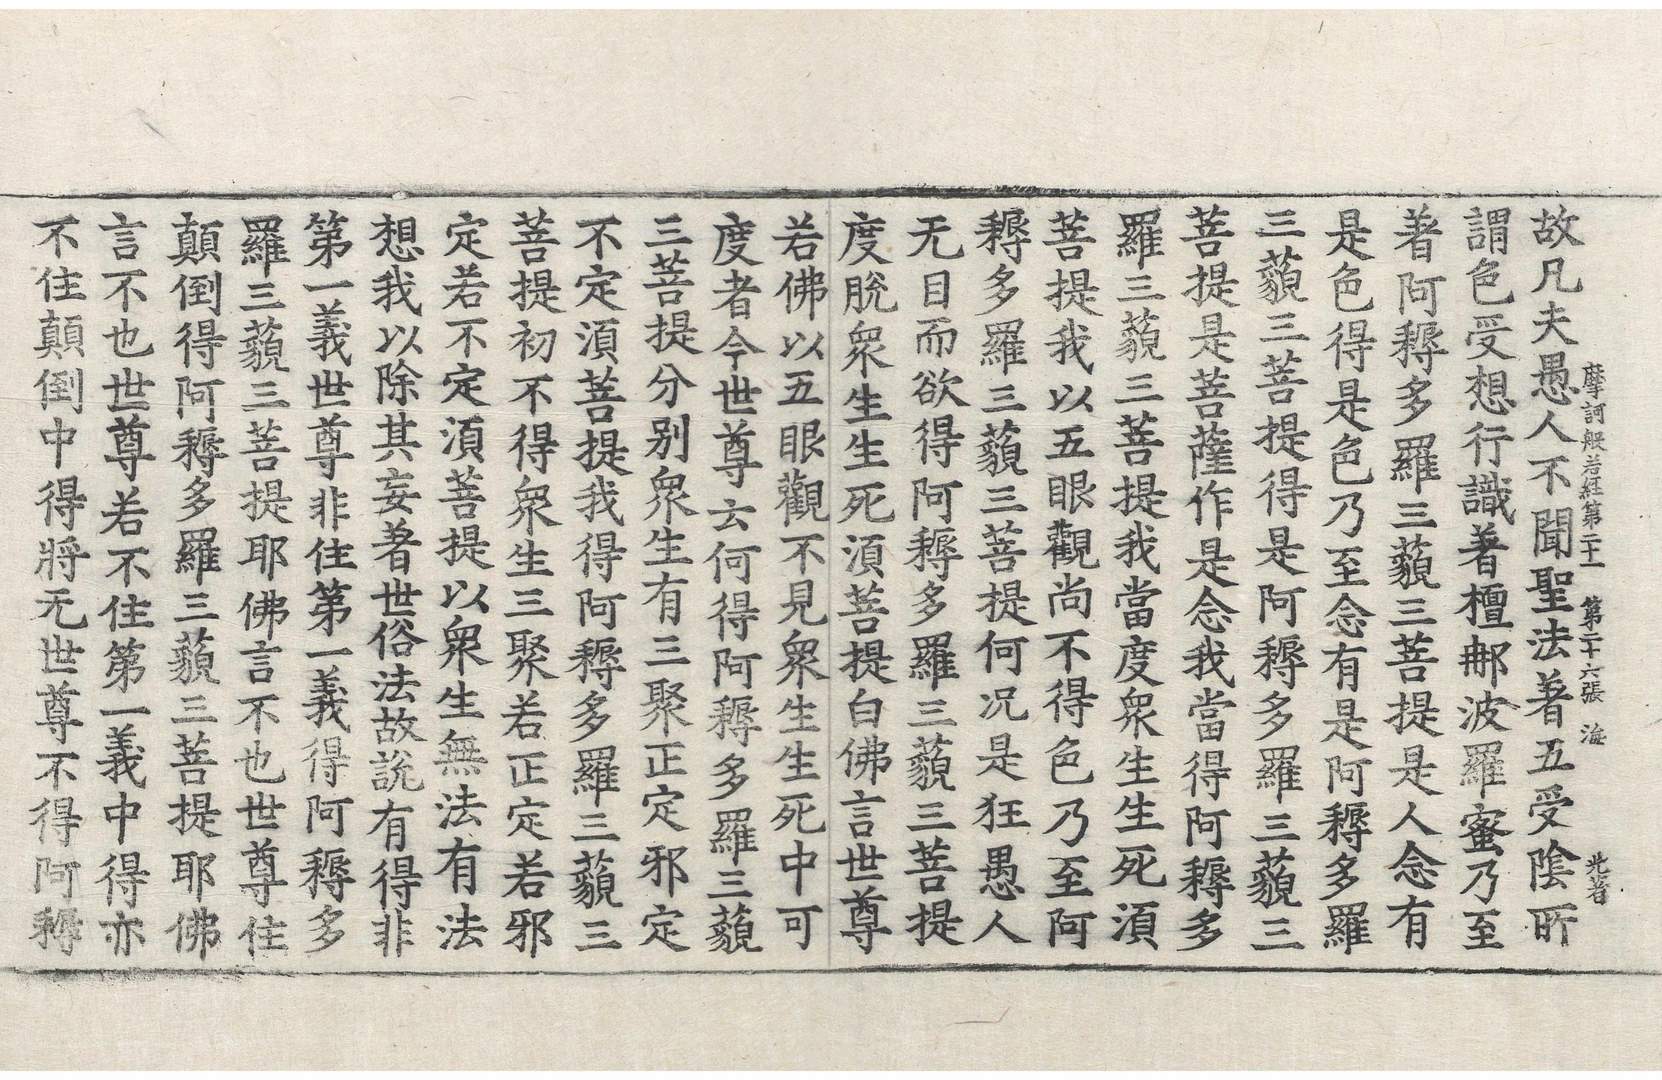 摩訶般若經第二十一 第二十六張 海
故凡夫愚人不聞聖法著五受陰所
謂色受想行識著檀那波羅蜜乃至
著阿耨多羅三藐三菩提是人念有
是色得是色乃至念有是阿耨多羅
三藐三菩提得是阿耨多羅三藐三
菩提是菩薩作是念我當得阿耨多
羅三藐三菩提我當度眾生生死須
菩提我以五眼觀尚不得色乃至阿
耨多羅三藐三菩提何況是狂愚人
无目而欲得阿耨多羅三藐三菩提
度脫眾生生死須菩提白佛言世尊
若佛以五眼觀不見眾生生死中可
度者今世尊云何得阿耨多羅三藐
三菩提分別眾生有三聚正定邪定
不定須菩提我得阿耨多羅三藐三
菩提初不得眾生三聚若正定若邪
定若不定須菩提以眾生無法有法
想我以除其妄著世俗法故說有得非
第一義世尊非住第一義得阿耨多
羅三藐三菩提耶佛言不也世尊住
顛倒得阿耨多羅三藐三菩提耶佛
言不也世尊若不住第一義中得亦
不住顛倒中得將无世尊不得阿耨